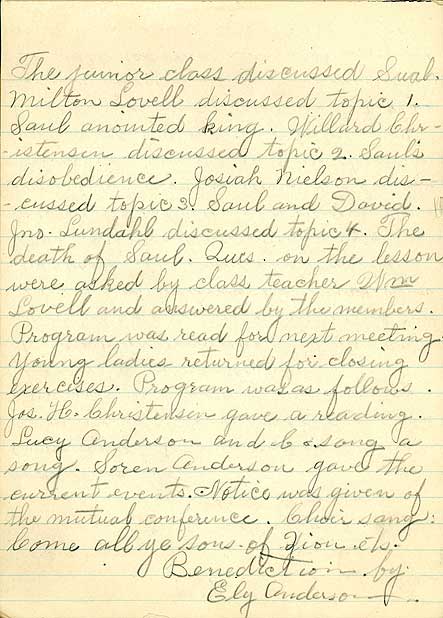 The junior class discussed Sual.
Milton Lovell discussed topic 1.
Saul anointed king. Willard Chr-
-istensen discussed topic 2. Saul's
disobediience. Josiah Nielson dis-
-cussed topic 3. Saul and David.
Jno. Lundahl discussed topic 4. The
death of Saul. Ques. on the lesson
were asked by class teacher Wm
Lovell and answered by the members.
Program was read for next meeting.
Young ladies returned for closing
exercises. Program was as follows.
Jos. H. Christensen gave a reading.
Lucy Anderson and Co. song a
song. Soren Anderson gave the
current events. Notice was given of
the mutual conference. Choir sang:
Come all ye sons of Zion etc.
Benediction by:
Ely Anderson.